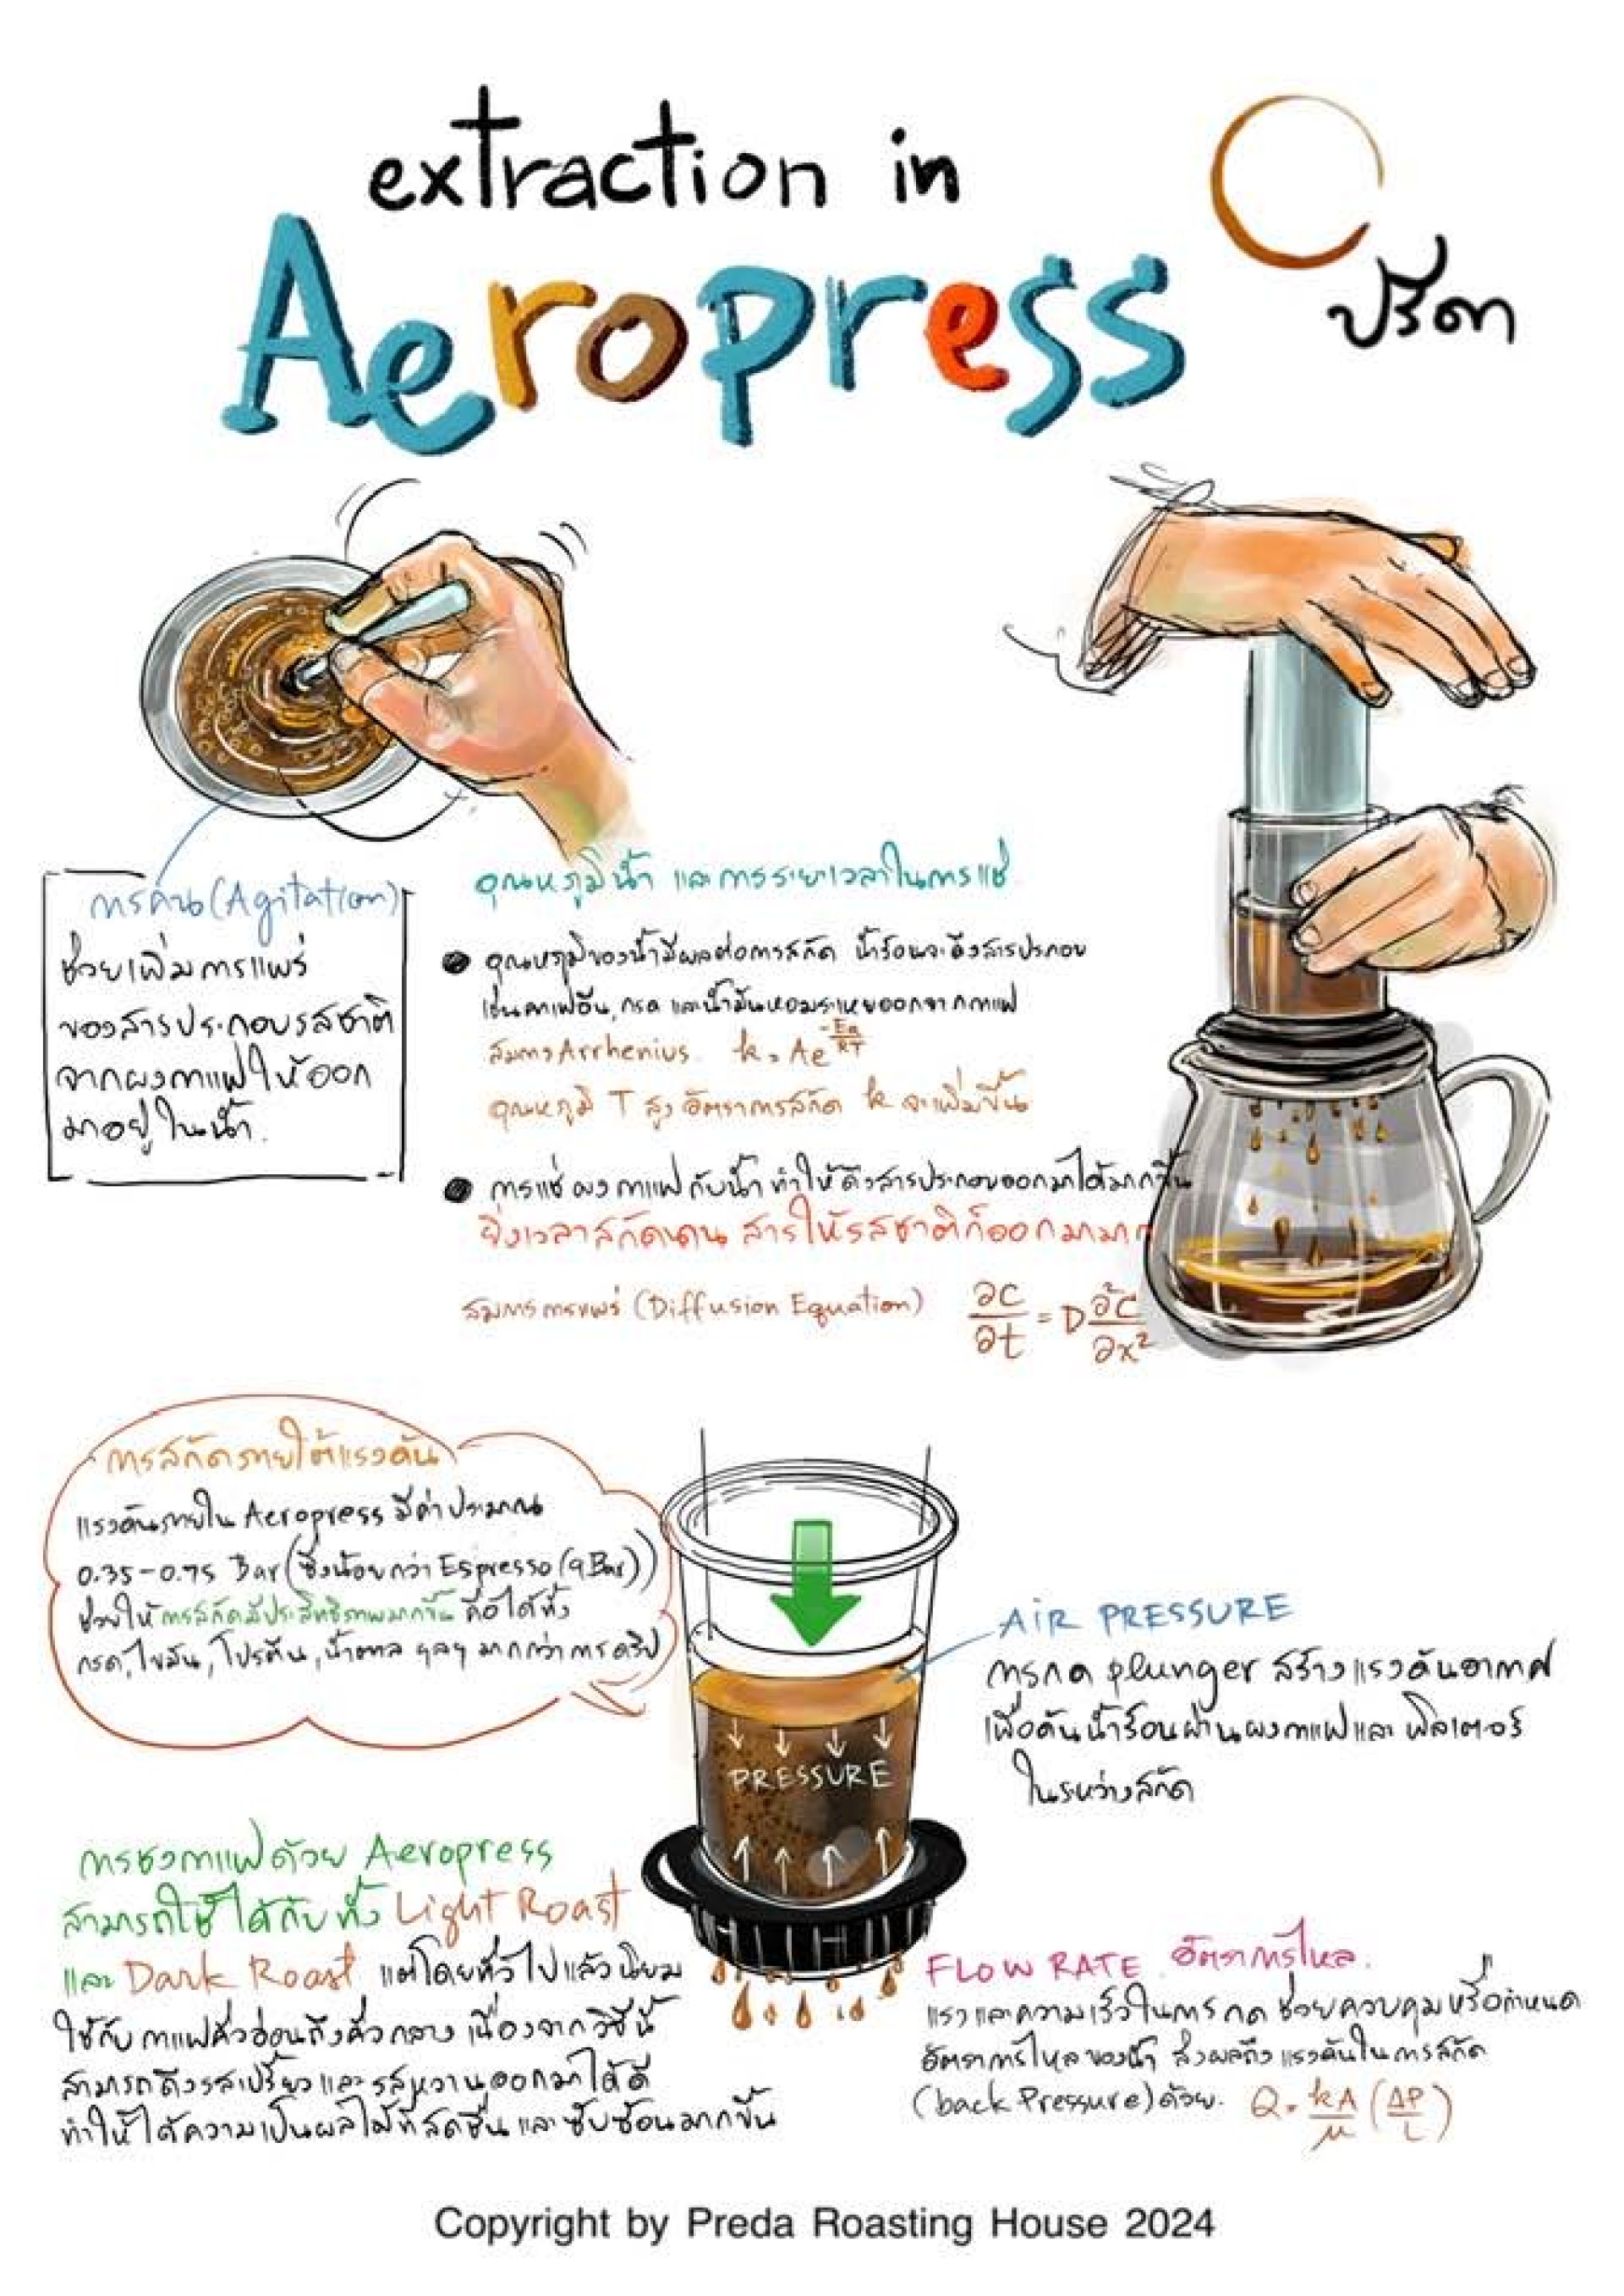 extraction in
Aeropress
ปรีดา
การคน (Agitation)
ช่วยเพิ่มการแพร่
ของสารประกอบรสชาติ
จากผงกาแฟให้ออก
มาอยู่ในน้ำ.
อุณหภูมิน้ำ และการระยะเวลาในการแช่
อุณหภูมิของน้ำมีผลต่อการสกัด น้ำร้อนจะดึงสารประกอบ
เช่นคาเฟอีน, กรด และน้ำมันหอมระเหยออกจากกาแฟ
สมการ Arrhenius. k = Ae^(-Ea/RT)
อุณหภูมิ T สูง อัตราการสกัด k จะเพิ่มขึ้น
การแช่ ผงกาแฟกับน้ำ ทำให้ดึงสารประกอบออกมาได้มากขึ้น
ยิ่งเวลาสกัดนาน สารให้รสชาติก็ออกมามาก
สมการการแพร่ (Diffusion Equation) ∂C/∂t = D ∂²C/∂x²
การสกัดภายใต้แรงดัน
แรงดันภายใน Aeropress มีค่าประมาณ
0.35-0.75 Bar (ซึ่งน้อยกว่า Espresso (9 Bar))
ช่วยให้การสกัดมีประสิทธิภาพมากขึ้น คือได้ทั้ง
กรด, ไขมัน, โปรตีน, น้ำตาล ฯลฯ มากกว่าการดริป
PRESSURE
AIR PRESSURE
การกด plunger สร้างแรงดันอากาศ
เพื่อดันน้ำร้อนผ่านผงกาแฟและ ฟิลเตอร์
ในระหว่างสกัด
การชงกาแฟด้วย Aeropress
สามารถใช้ได้กับทั้ง Light Roast
และ Dark Roast แต่โดยทั่วไปแล้วนิยม
ใช้กับกาแฟคั่วอ่อนถึงคั่วกลาง เนื่องจากวิธีนี้
สามารถดึงรสเปรี้ยวและรสหวานออกมาได้ดี
ทำให้ได้ความเป็นผลไม้ที่สดชื่น และ ซับซ้อนมากขึ้น
FLOW RATE. อัตราการไหล.
แรงและความเร็วในการกด ช่วยควบคุมหรือกำหนด
อัตราการไหลของน้ำ ส่งผลถึงแรงดันในการสกัด
(back Pressure) ด้วย. Q = kA/μ (ΔP/L)
Copyright by Preda Roasting House 2024